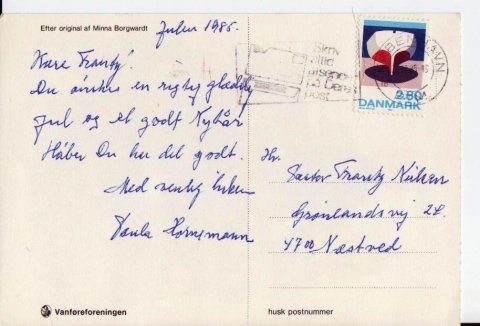 Efter original af Minna Borgwardt
Julen 1985.
Kære Frantz!
Du ønskes en rigtig glædelig
jul og et godt Nytår
Håber Du har det godt.
Med venlig hilsen
Paula Hornemann
Vanføreforeningen
Skriv
altid
afsender
på Deres
post
KØBENHAVN
2.80
DANMARK
Hr.
Pastor Frantz Nielsen
Grønlandsvej
4700 Næstved
husk postnummer